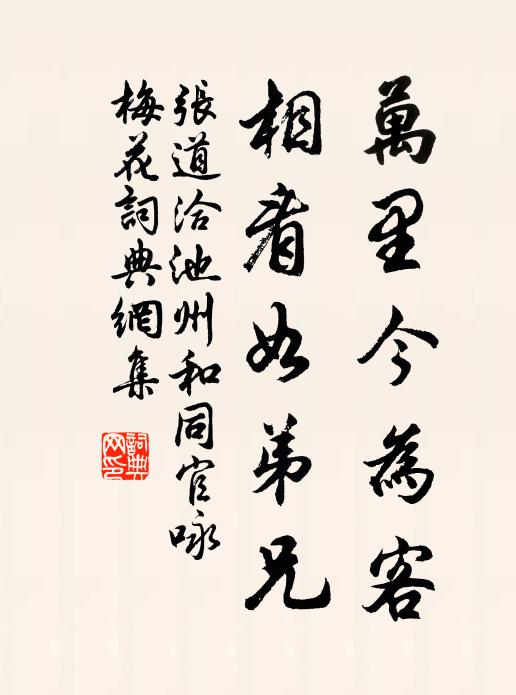 萬里今為客
相看如弟兄
張道洽池州和同官咏
梅花詞典網集
詞典
网印